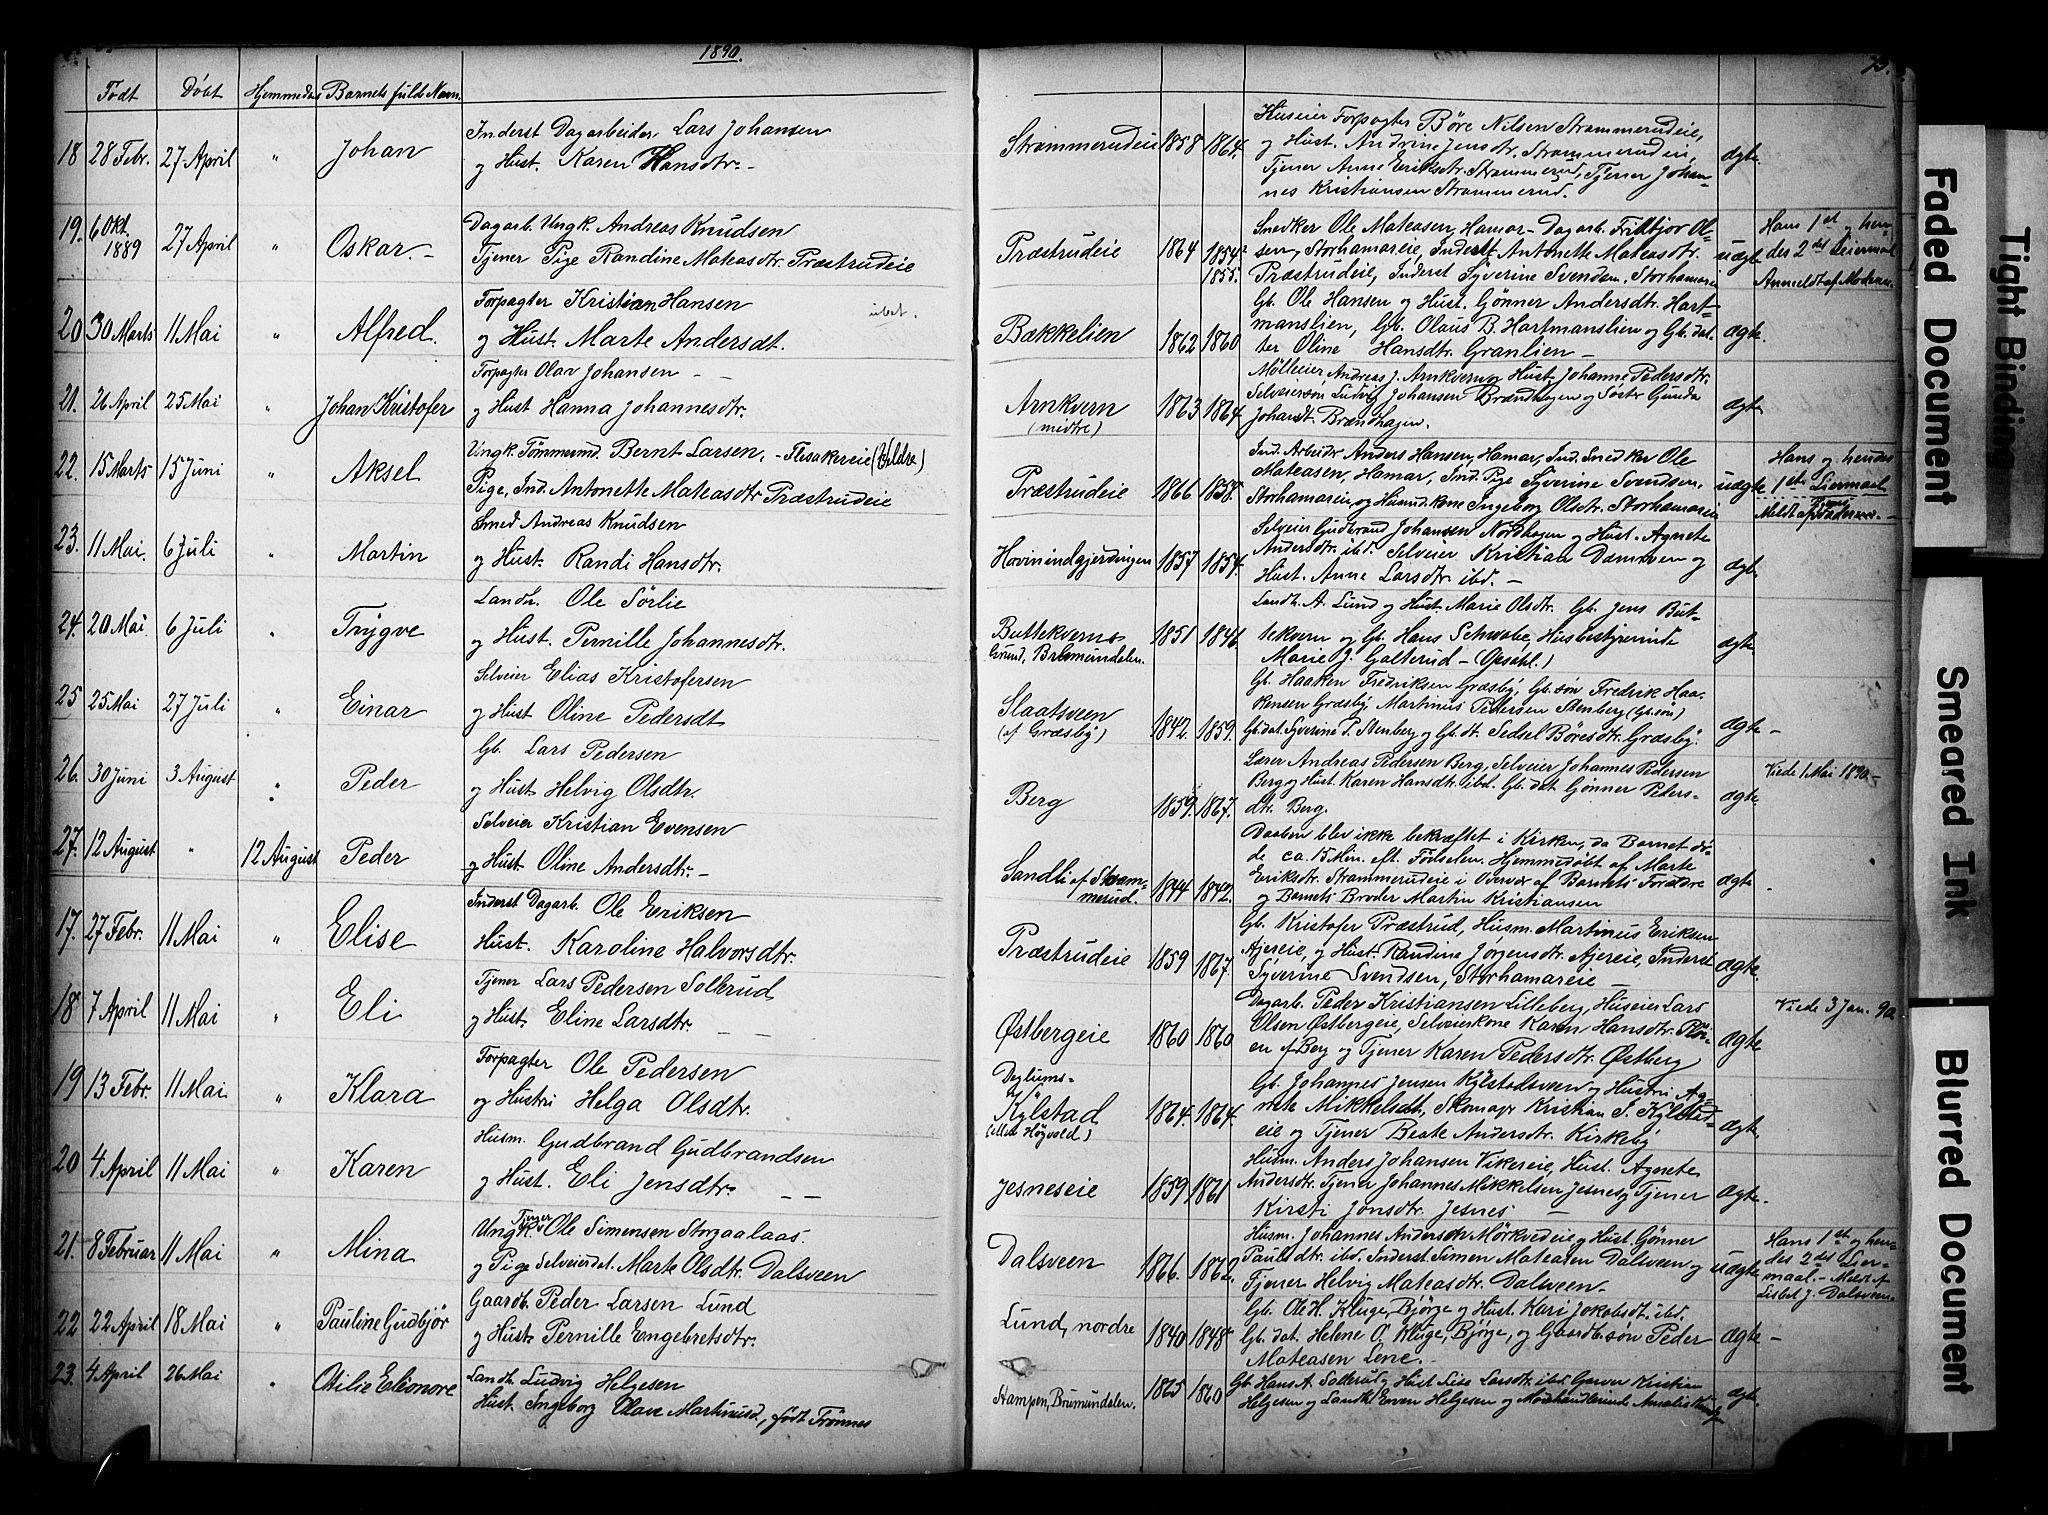 1890.
73.
Født Døbt Hjemmedøbt Barnets fulde Navn.
18 28 Febr. 27 April " Johan
Inderst Dagarbeider Lars Johansen
og Hust. Karen Hansdtr. -
Strammerudeie 1858 1864.
Huseier Forpagter Børe Nilsen Strammerudeie,
og Hust. Andrine Jensdtr. Strammerudeie,
Tjener Anne Eriksdtr. Strammerud, Tjener Johan-
nes Kristiansen Strammerud.
ægte
19. 6 Okt. 1889 27 April " Oskar. -
Dagarb. Ungk. Andreas Knudsen
Tjener Pige Randine Mateasdtr. Præstrudeie
Præstrudeie 1864 1854 1855.
Snedker Ole Mateasen, Hamar - Dagarb. Fridtjor Ol-
sen, Storhamareie, Inderst Antonette Mateasdtr.
Præstrudeie, Inderst Syverine Svendsen, Storhamareie
uægte
Hans 1st og hen-
des 2det Leiermaal
Anmeldt af Moderen
20 30 Marts 11 Mai " Alfred.
Forpagter Kristian Hansen
og Hust. Marte Andersdt.
Bækkelien 1862 1860
Gb. Ole Hansen og Hust. Gønner Andersdtr. Hart-
manslien, Gb. Olaus B. Hartmanslien og Gb. dat-
ter Oline Hansdtr. Granlien -
ægte.
21. 26 April 25 Mai " Johan Kristofer
Forpagter Olav Johansen - -
og Hust Hanna Johannesdtr.
Arnkvern
(midtre)
1863 1864.
Mølleier Andreas J. Arnkvern og Hust. Johanne Pedersdtr.
Selveiersøn Ludvig Johansen Brændhagen og Søster Gunda
Johansdt. Brændhagen.
ægte
22. 15 Marts 15 Juni " Aksel
Ungk. Tømmermd. Bernt Larsen, - Flesakereie (Veldre)
Pige, Ind. Antonette Mateasdtr Præstrudeie
Præstrudeie 1866 1858.
Ind. Arbeidr. Anders Hansen, Hamar, Ind. Snedker Ole
Mateasen, Hamar, Ind. Pige Syverine Svendsen,
Storhamareie og Husmd.kone Ingeborg Olsdtr. Storhamareie
uægte
Hans og hendes
1ste Leiermaal
Meldt af Faderen. -
23. 11 Mai. 6 Juli " Martin
Smed Andreas Knudsen
og Hust. Randi Hansdtr.
Hovinindgjerdingen 1857 1854.
Selveier Gudbrand Johansen Nordhagen og Hust. Agnete
Andersdtr. ibd. Selveier Kristian Damsveen og
Hust. Anne Larsdtr. ibd. -
ægte.
24. 20 Mai. 6 Juli " Trygve
Landh. Ole Sørlie
og Hust. Pernille Johannesdtr.
Buttekverns
Grund, Brumundalen.
1851 1846.
Landh. A. Lund og Hust. Marie Olsdtr. Gb. Jens But-
tekvern og Gb. Hans Schwabe, Husbestyrerinde
Marie J. Galterud - (Opsahl.)
ægte
25 25 Mai 27 Juli " Einar
Selveier Elias Kristofersen
og Hust Oline Pedersdt
Slaatsveen
(af Græsby)
1842. 1859.
Gb. Haaken Fredriksen Græsby, Gb. søn Fredrik Haa-
kensen Græsby Martinus Pedersen Stenberg (Gb.søn)
Gb. dat. Syverine P. Stenberg og Gb. dt. Sedsel Børesdtr. Græsby.
ægte -
26. 30 Juni 3 August " Peder
Gb. Lars Pedersen
og Hust Helvig Olsdtr.
Berg 1859. 1867.
Lærer Andreas Pedersen Berg, Selveier Johannes Pedersen
Berg og Hust. Karen Hansdtr ibd. Gb. dat Gønner Peders-
dtr. Berg.
ægte.
Viede 1 Mai 1890. -
27. 12 August " 12 August Peder
Selveier Kristian Evensen
og Hust. Oline Andersdtr. -
Sandli af Stram-
merud.
1844 1842.
Daaben blev ikke bekræftet i Kirken, da Barnet dø-
de ca. 15 Min. eft. Fødselen. Hjemmedøbt af Marte
Eriksdtr. Strammerudeie i Overvær af Barnets Forældre
og Barnets Broder Martin Kristiansen
ægte
17. 27 Febr. 11 Mai " Elise
Inderst Dagarb. Ole Eriksen
Hust. Karoline Halvorsdtr.
Præstrudeie 1859 1867.
Gb. Kristofer Præstrud, Husm. Martinus Eriksen
Ajereie, og Hust. Randine Jørgensdtr. Ajereie, Inderst
Syverine Svendsen, Storhamareie -
ægte.
18 7 April 11 Mai " Eli
Tjener Lars Pedersen Solbrud
og Hust. Eline Larsdtr. - -
Østbergeie 1860 1860
Dagarb. Peder Kristiansen Lilleberg, Huseier Lars
Olsen Østbergeie, Selveierkone Karen Hansdtr. Plør-
en af Berg og Tjener Karen Pedersdtr. Østberg
ægte
Viede 3 Jan. 90.
19 13 Febr. 11 Mai. " Klara
Forpagter Ole Pedersen
og Hustri Helga Olsdtr.
Deglums-
Kylstad
(eller Høgvold)
1864. 1864.
Gb. Johannes Jensen Kylstadsveen og Hustri Ag-
nete Mikkelsdt., Skomager Kristian J. Kylstad-
eie og Tjener Beate Andersdtr. Kirkeby
ægte.
20 4 April 11 Mai " Karen
Husm. Gudbrand Gudbrandsen
og Hust. Eli Jensdtr. - -
Jesneseie 1859 1861
Husm. Anders Johansen Vikereie, Hust. Agnete
Andersdtr. Tjener Johannes Mikkelsen Jesnes og Tjener
Kirsti Jonsdtr. Jesnes -
ægte.
21. 8 Februar 11 Mai " Mina
Ungk. Tjener Ole Simensen Storgaalaas.
og Pige Selveierdat. Marte Olsdtr. Dalsveen
Dalsveen 1866. 1862.
Husm. Johannes Andersen Mörkvedeie og Hust. Gønner
Paulsdtr. ibd. Inderst Simen Mateasen Dalsveen og
Tjener Helvig Mateasdtr. Dalsveen. -
uægte
Hans 1st og hen-
des 2det Leier-
maal. - Meldt af
Lisbet J. Dalsveen.
22 22 April 18 Mai " Pauline Gudbjør
Gaardb. Peder Larsen Lund
og Hust. Pernille Engebretsdtr.
Lund, nordre 1840 1848.
Gb. Ole H. Kluge, Bjørge og Hust. Kari Jakobsdt. ibd.
Gb. dat. Helene O. Kluge, Bjørge, og Gaardb.søn Peder
Mateasen Lene. -
ægte -
23. 4 April 26 Mai " Otilie Elionore
Landh. Ludvig Helgesen
Hust. Ingeborg Olave Martinusd., født Trønnes
Stampen, Brumundalen. 1865 1860
Gb Hans A. Sollerud, Hust Lise Larsdtr ibd. Garver Kristian
Helgesen og Landh. Even Helgesen og Modehandlerinde Amalie
ægte.
Faded Document
Tight Binding
Smeared Ink
Blurred Document